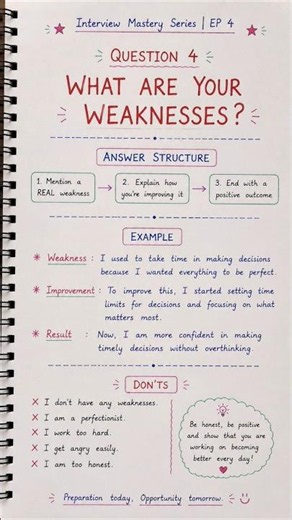 Interview Mastery Series | EP 4
QUESTION 4
WHAT ARE YOUR
WEAKNESSES?
ANSWER STRUCTURE
1. Mention a
REAL weakness
2. Explain how
you're improving it
3. End with a
positive outcome
EXAMPLE
Weakness : I used to take time in making decisions
because I wanted everything to be perfect.
Improvement : To improve this, I started setting time
limits for decisions and focusing on what
matters most.
Result : Now, I am more confident in making
timely decisions without overthinking.
DON'TS
X I don't have any weaknesses.
X I am a perfectionist.
X I work too hard.
X I get angry easily.
X I am too honest.
Be honest, be positive
and show that you are
working on becoming
better every day!
Preparation today, Opportunity tomorrow.